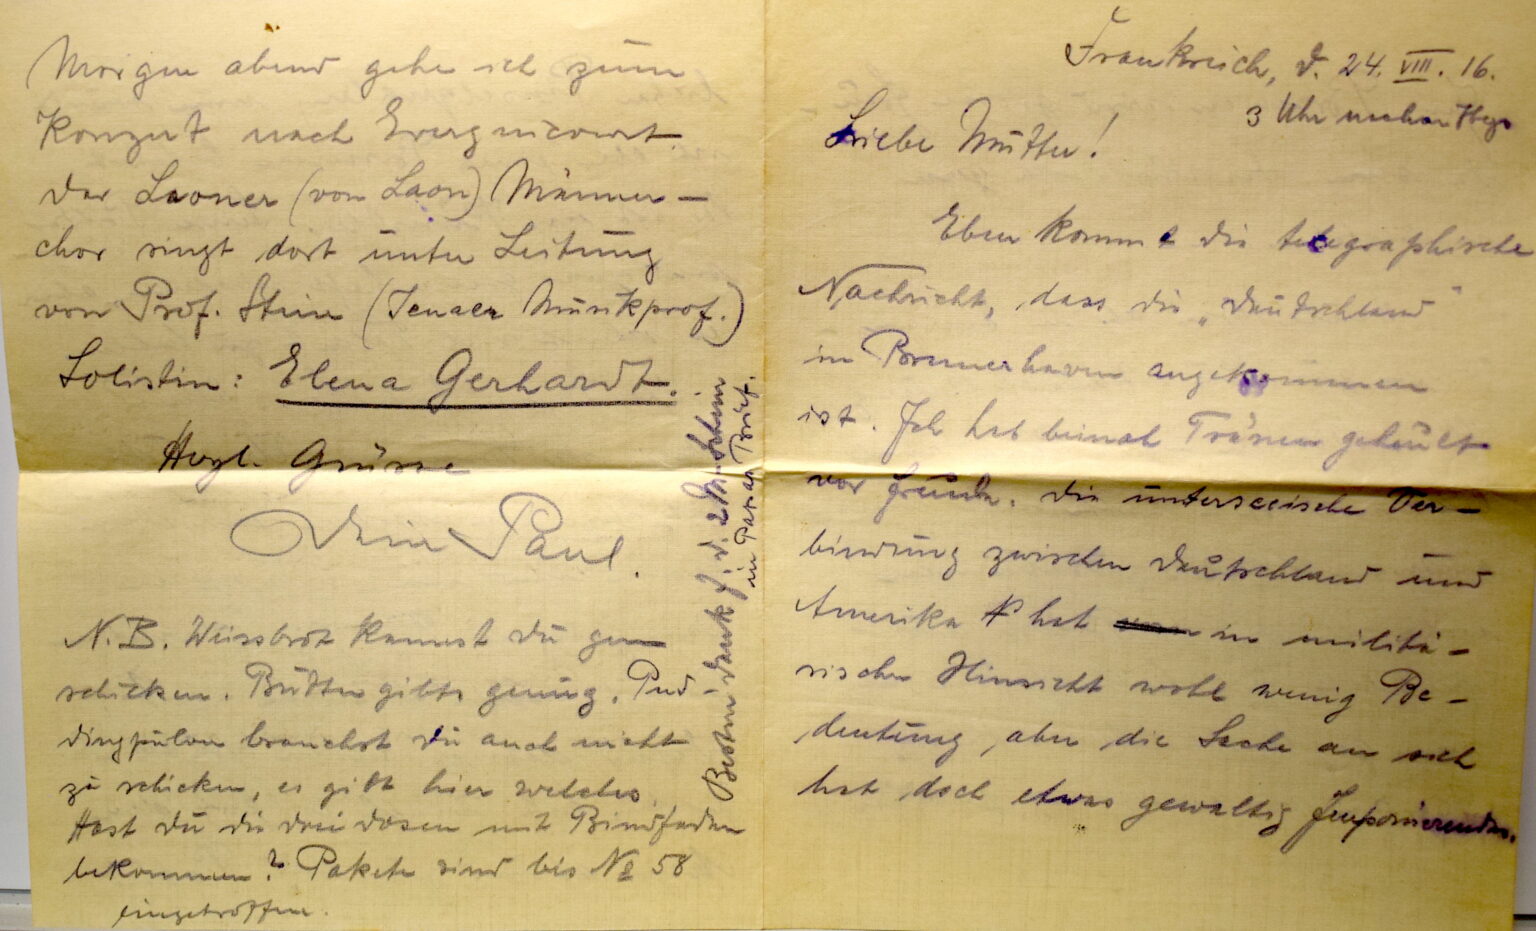 Frankreich, d. 24. VIII. 16.
3 Uhr nachm
Liebe Mutter!
Eben kommt die telegraphische
Nachricht, dass die „Deutschland"
in Bremerhaven angekommen
ist. Ich hab beinah Tränen geheult
vor Freude. Die unterseeische Ver-
bindung zwischen Deutschland und
Amerika hat in militä-
rischer Hinsicht wohl wenig Be-
deutung, aber die Sache an sich
hat doch etwas gewaltig Imponierendes.
Morgen abend gehe ich zum
Konzert nach Evergnicourt.
Der Laoner (von Laon) Männer-
chor singt dort unter Leitung
von Prof. Stein (Jenaer Musikprof.)
Solistin: Elena Gerhardt.
Herzl. Grüsse
Dein Paul.
N.B. Weissbrot kannst du gern
schicken. Butter gibts genug. Pud-
dingpulver brauchst du auch nicht
zu schicken, es gibt hier welches.
Hast du die drei Dosen mit Bindfaden
bekommen? Pakete sind bis No 58
eingetroffen.
Besten Dank f. d. 2 M. Schein
in Brief.